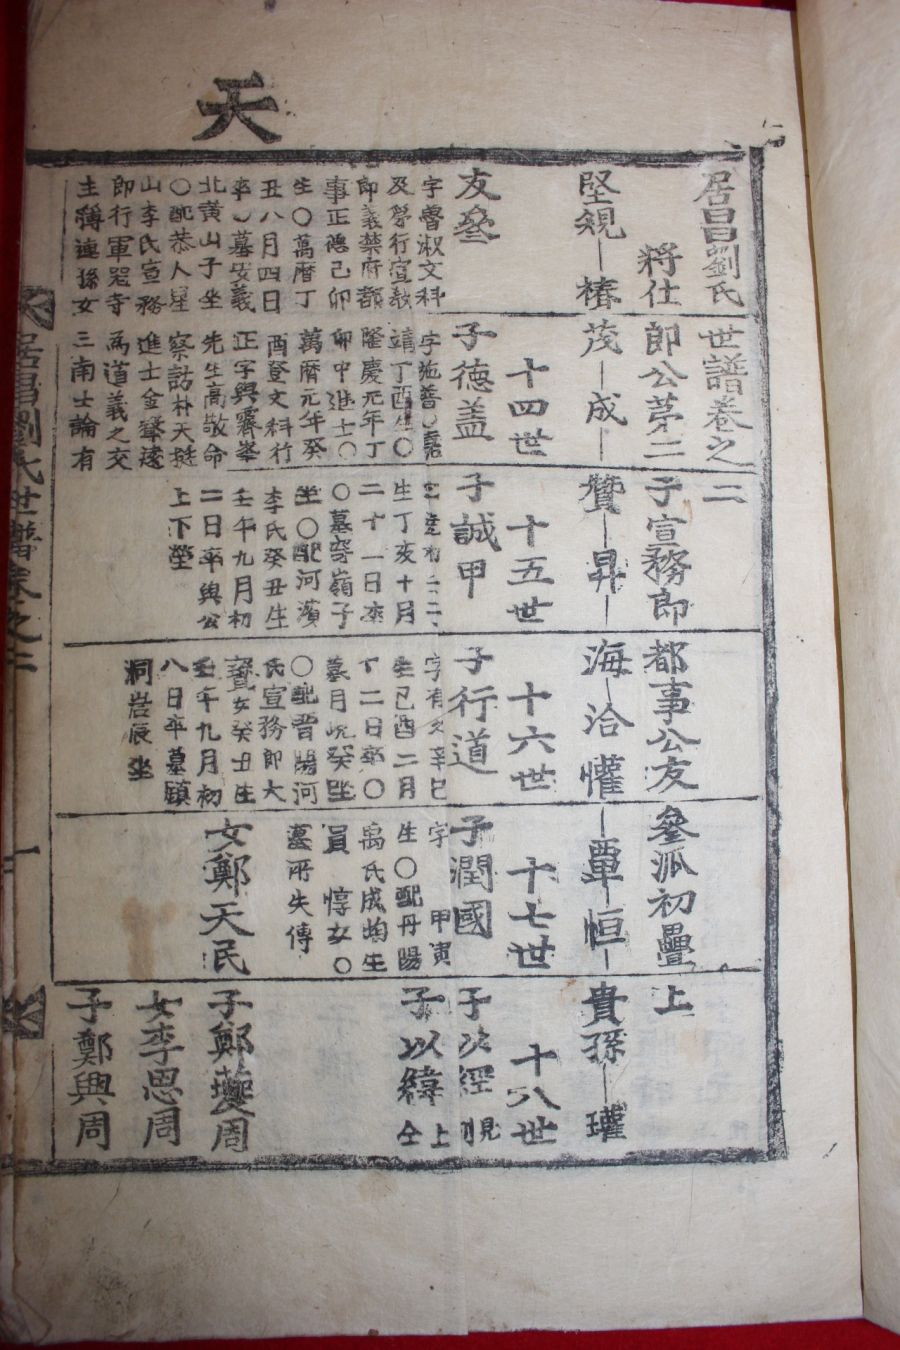 天
居昌劉氏世譜卷之二
將仕郎公第二子宣務郎都事公友參派初疊上
堅規─椿─茂─成─贊─昇─海─洽─懽─覃─恒─貴孫─瓘
十四世
十五世
十六世
十七世
十八世
友參
字魯叔文科
及第行宣敎
郎義禁府都
事正德己卯
生〇萬曆丁
丑八月四日
卒〇墓安義
北黃山子坐
〇配恭人星
山李氏宣務
郎行軍器寺
主簿連孫女
子德盖
字施普〇嘉
靖丁酉生〇
隆慶元年丁
卯中進士〇
萬曆元年癸
酉登文科行
正字與霽峯
先生高敬命
察訪朴天挺
進士金聲遠
爲道義之交
三南士論有
子誠甲
生丁亥十月
二十一日卒
〇墓穹嶺子
坐〇配河濱
李氏癸丑生
壬午九月初
二日卒與公
上下塋
子行道
字有 辛巳
生己酉二月
十二日卒〇
墓月峴癸坐
〇配晋陽河
氏宣務郎大
寶女癸丑生
壬午九月初
八日卒墓顧
洞岩辰坐
子潤國
字 甲寅
生〇配丹陽
禹氏成均生
員 惇女〇
墓所失傳
女鄭天民
子汝經見別
子以緯仝上
子鄭夔周
女李思周
子鄭興周
居昌劉氏世譜卷之二
一